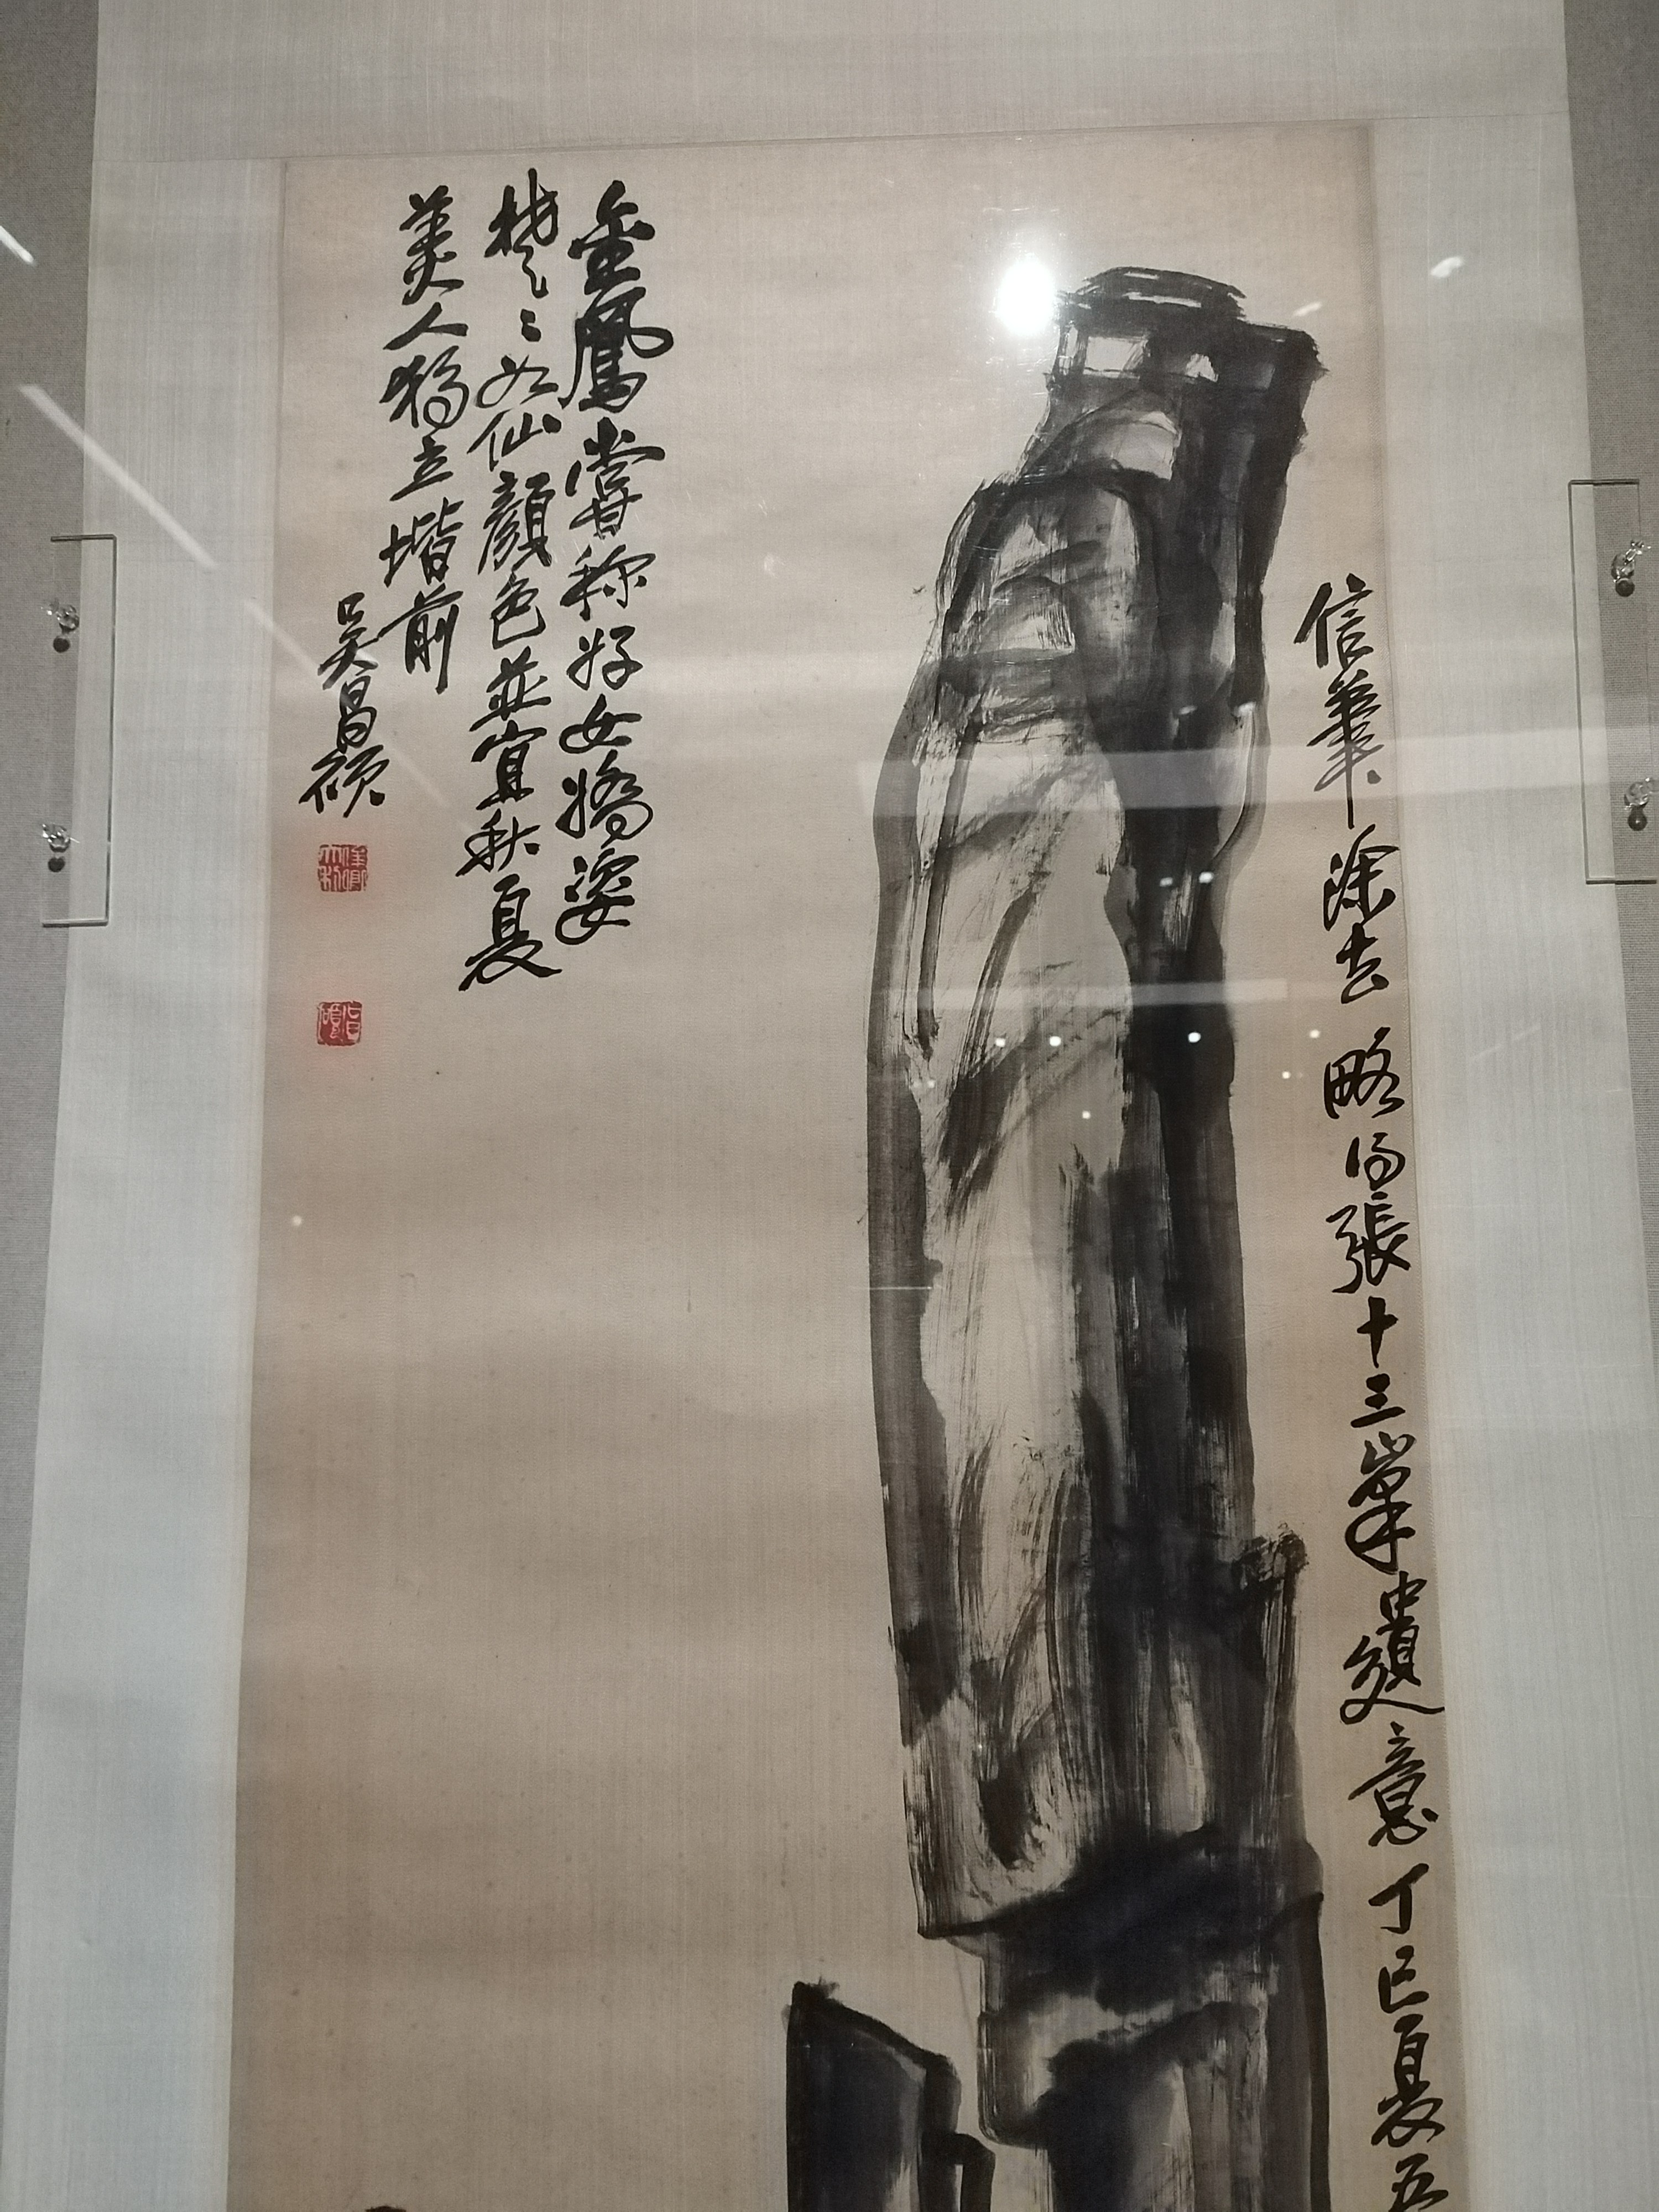 信筆塗去略得張十三峯遺意丁巳夏五
金鳳嘗稱好女嬌姿
楚〻如仙顔色並宜秋夏
美人獨立堦前
吳昌碩